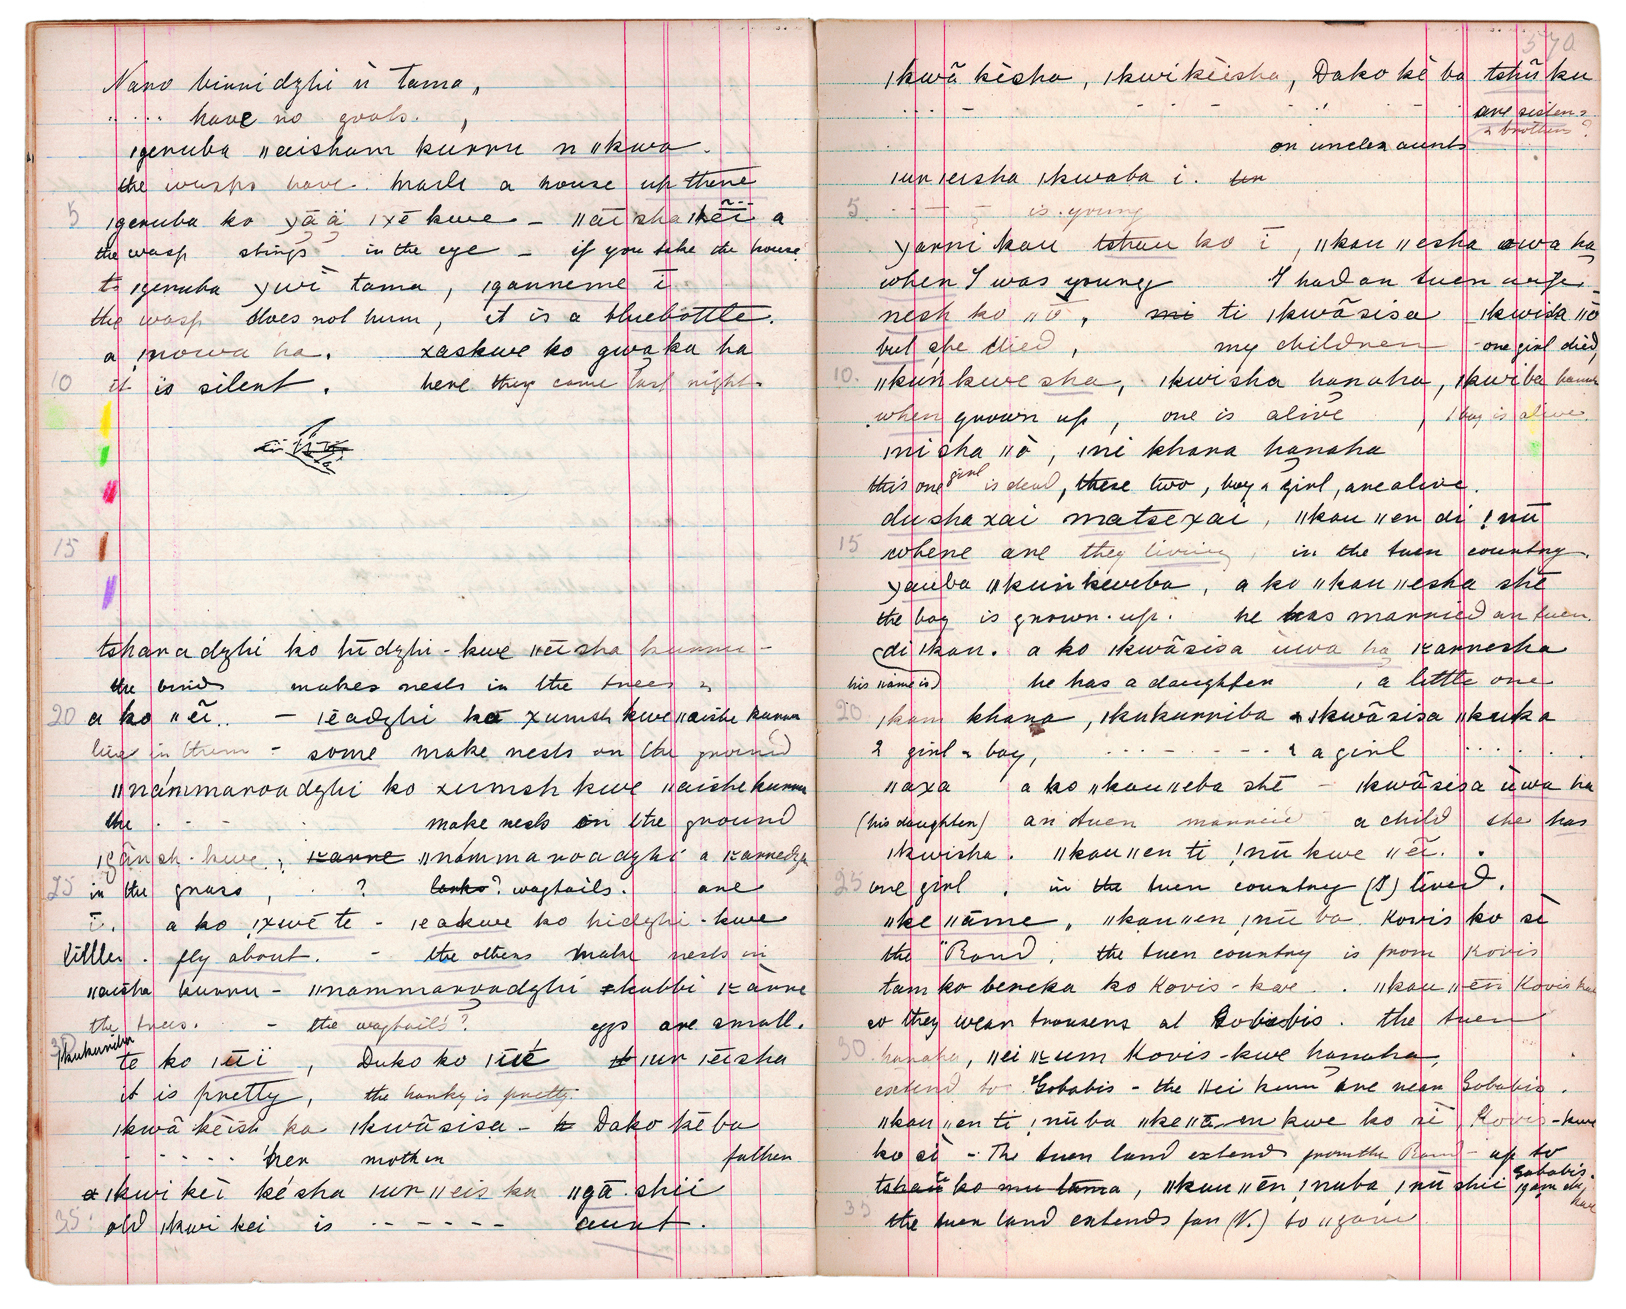 Naro birridzhi ü tama,
. . . . have no goats. ,
ǀgeruba ǁaisham kurru n ǁkwa.
the wasps have made a house up there
5 ǀgeruba ko ɣãä ǀxē kwe – ǁāisha kēi a
the wasp stings in the eye – if you take the house
ti ǀgeruba ɣwī tama, ǀganneme ī
the wasp does not hum, it is a bluebottle.
a ǀnowa ha. xaskwe ko gwa ka ha
10 it is silent. here they come last night.
15
tshara dzhi ko hīdzhi - kwe ǁēisha kurru -
the birds makes nests in the trees &
20 a ko ǁēi.. – ǀēadzhi ko xumsh kwe ǁaishe kurru
live in them - some make nests on the ground
ǁnámmaroadzhi ko xumsh kwe ǁaishe kurru
the . - . make nests on the ground
ǀgānsh - kwe, karre ǁnámmaroadzhi a karredzi
25 in the grass, . ? larks? wagtails. are
ī. a ko ǀxwē te - ǀeakwe ko hidzhi - kwe
little . fly about. - the others make nests in
ǁaisha kurru – ǁnammaroadzhi ǂkubbi kàrre
the trees. - the wagtails? eggs are small.
30 ǀkukurriba
te ko ǀūī, Dako ko ǀūē ǀur ǀēisha
it is pretty, the hanky is pretty.
ǀkwā kēish ka ǀkwāsisa - Dako kē ba
- . . . . her mother father
a ǀkwi kēi késha ǀur ǁeis ka ǁgā shii
35. old ǀkwi kei is - - - - - - aunt.
570
ǀkwā kēsha, ǀkwi kēisha, Dako kē ba tshūku
are sisters
& brothers?
or uncles aunts
ǀur ǀeisha ǀkwaba i. ter
5 is young
ɣarri kau tshau ko ī, ǁkau ǁesha uwa ha
when I was young I had an Auen wife
nesh ko ǁō, mi ti ǀkwāsisa ǀkwisa ǁō
but she died, my children - one girl died,
10. ǁkuń kwe sha, ǀkwisha hanaha, ǀkwiba hanaha
when grown up, one is alive, 1 boy is alive.
ǀni sha ǁō, ǀni khara hanaha
this one girl is dead, these two, boy & girl, are alive.
du sha xai matsexai, ǁkau ǁen di ǃnū
15 where are they living, in the Auen country.
ɣauba ǁkuńkweba, a ko ǁkau ǁesha shē
the boy is grown-up. he has married an Auen.
di ǀkau. a ko ǀkwāsisa uwa ha karresha
his name is) he has a daughter , a little one
20 ǀkam khara, ǀkukurriba & ǀkwāsisa ǁkuka
2 girl & boy, . . . - - - - . . & a girl . . . . .
ǁaxa a ko ǁkau ǁeba shē – ǀkwāsisa ūwa ha
(his daughter) an Auen married a child she has
ǀkwisha. ǁkau ǁen ti ǃnū kwe ǁēi.
25 one girl, in the Auen country (I) lived.
ǁke ǁāme, ǁkau ǁen ǃnū ba Kovis ko sè
the "Rand, the Auen country is from Kovis
tam ko bereka ko Kovis - kwe . . ǁkau ǁēn Kovis kwe
so they wear trousers at Gobabis. the Auen
30 hanaha, ǁei kum Kovis-kwe hanaha,
extend to Gobabis - the ǁei kum are near Gobabis.
ǁkau ǁen ti ǃnūba ǁke ǁā en kwe ko sì Kovis - kwe
ko sè – The Auen land extends from the Rand – up to Gobabis.
tshaū ko mu tama, ǁkau ǁēn ǃnuba ǃnū shii ǀgam di kwe
35 the Auen land extends far (N.) to ǁgam